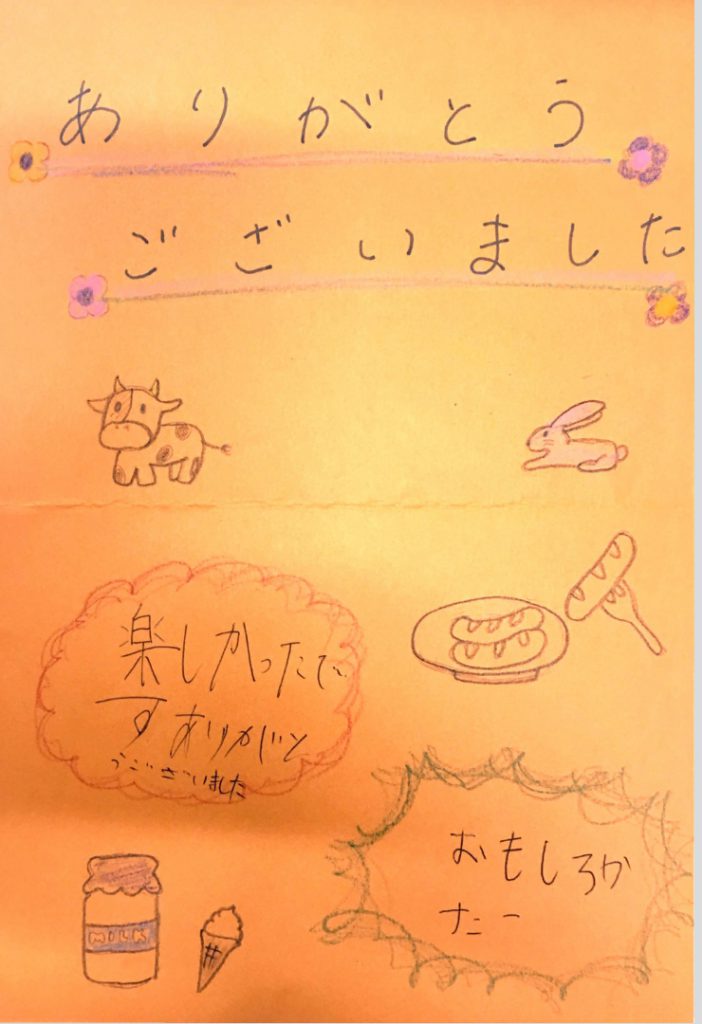 ありがとう
ございました
楽しかったで
すありがと
うございました
おもしろか
たー
MILK